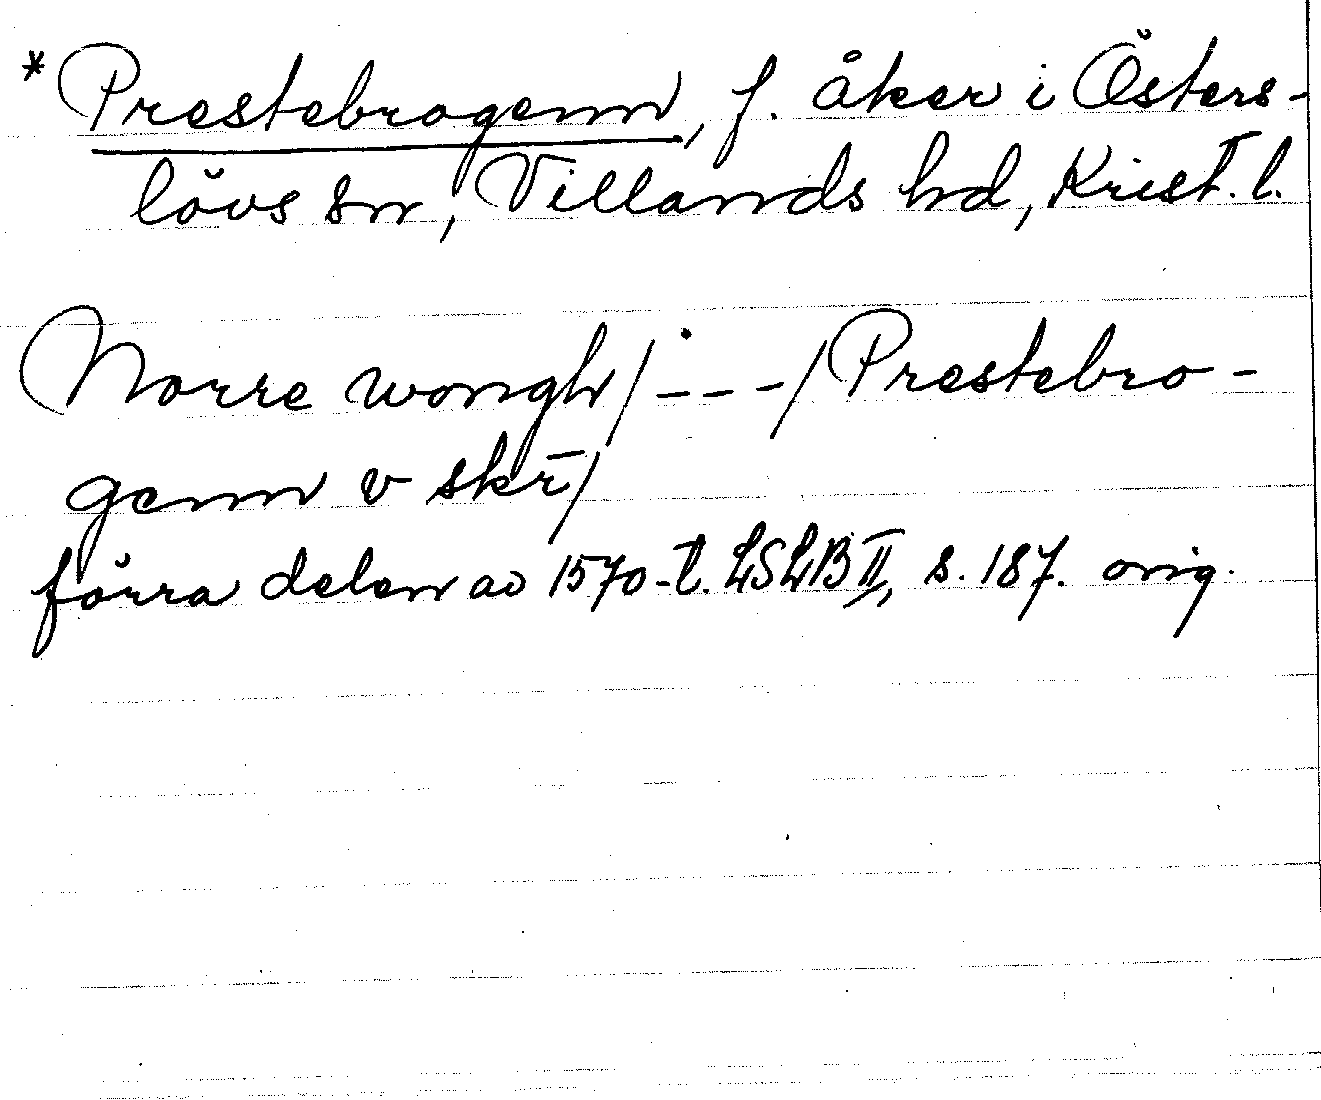 * Prestebrogenn, f. åker i Östers-
lövs sn, Villands hd, Krist. l.
Norre wongh/---/Prestebro-
genn v skr̄/
förra delen av 1570-t. LSLB II, s. 187. orig.